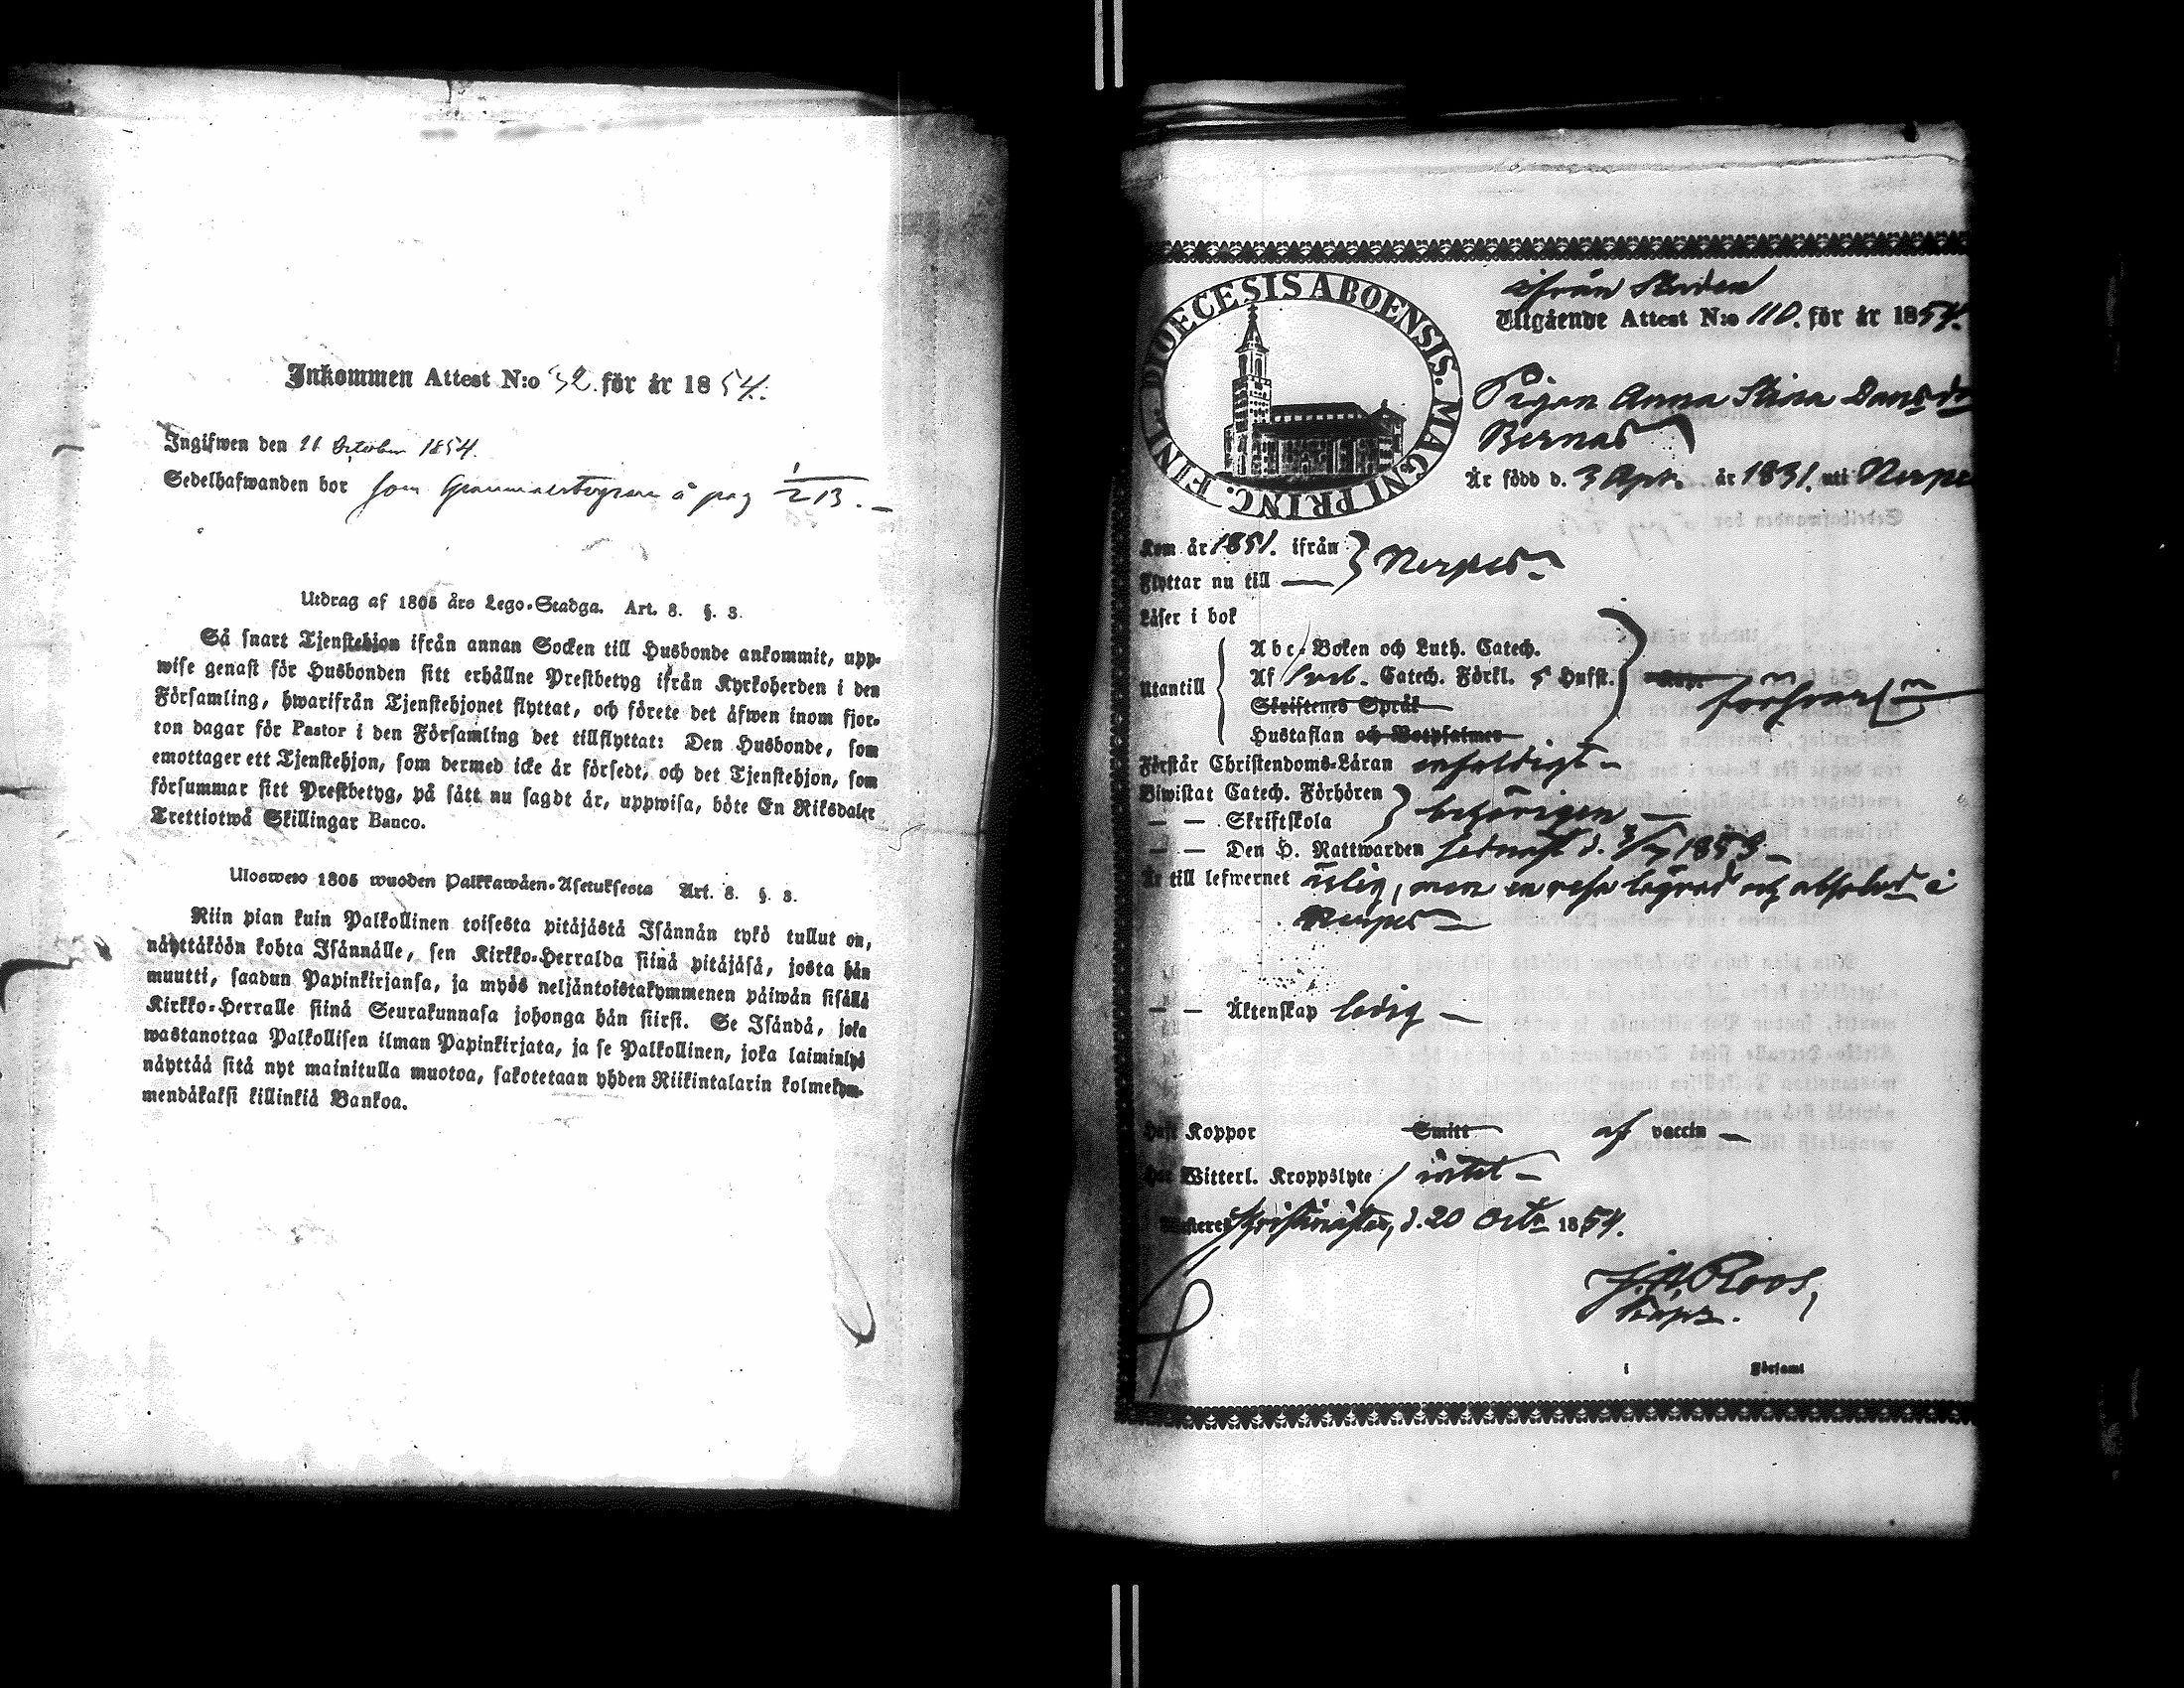 Inkommen Attest N:o 32. för år 1854.
Ingifwen den 21 October 1854.
Sedelhafwanden bor som å pag 1/213. —
Utdrag af 1805 års Lego-Stadga. Art. 8. §. 3.
Så snart Tjenstehjon ifrån annan Socken till Husbonde ankommit, upp-
wise genast för Husbonden sitt erhållne Prestbetyg ifrån Kyrkoherden i den
Församling, hwarifrån Tjenstehjonet flyttat, och förete det äfwen inom fjor-
ton dagar för Pastor i den Församling det tillflyttat: Den Husbonde, som
emottager ett Tjenstehjon, som dermed icke är försedt, och det Tjenstehjon, som
försummar sitt Prestbetyg, på sätt nu sagdt är, uppwisa, böte En Riksdaler
Trettiotwå Skillingar Banco.
Ulosweto 1805 wuoden Palkkawäen-Asetuksesta Art. 8. §. 3.
Niin pian kuin Palkollinen toisesta pitäjästä Isännän tykö tullut on,
näyttäköön kohta Isännälle, sen Kirkko-Herralda siinä pitäjäsä, josta hän
muutti, saadun Papinkirjansa, ja myös neljäntoistakymmenen päiwän sisällä
Kirkko-Herralle siinä Seurakunnasa johonga hän siirsi. Se Isändä, joka
wastanottaa Palkollisen ilman Papinkirjata, ja se Palkollinen, joka laiminlyö
näyttää sitä nyt mainitulla muotoa, sakotetaan yhden Riikintalarin kolmekym-
mendäkaksi killinkiä Bankoa.
DIOECESIS ABOENSIS. MAGNI PRINC. FINL.
ifrån Staden
Utgående Attest N:o 110. för år 1854.
Pigan Anna Stina Dansdr
Bernas
Är född d. 3 Apr. år 1831. uti Nerpe
Kom år 1851. ifrån } Nerpes
Flyttar nu till —
Läser i bok
Abc-Boken och Luth. Catech.
Utantill Af Sveb. Catech. Förkl. 5 Hufst. försvarl.
Skriftenes Språk
Hustaflan och Botpsalmer
Förstår Christendoms-Läran enfaldigt —
Biwistat Catech. Förhören } behörigen —
— — Skriftskola
— — Den H. Nattwarden sednast d. 3/7 1853 —
Är till lefwernet ärlig, men en resa lägrad och absolverad i
Nerpes —
— — Äktenskap ledig —
Haft Koppor Smitt af vaccin —
Har Witterl. Kroppslyte intet —
Kristinestad, d. 20 Octr 1854.
J. A. Roos,
i Församl